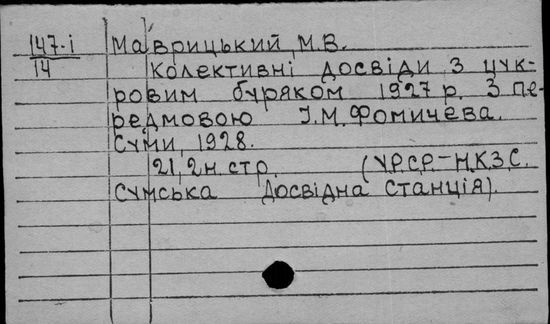 147-і Маврицький, М.В.
14 Колективні досвіди з цук-
ровим буряком 1927 р. З пе-
редмовою І.М.Фомичева.
Суми, 1928.
21, 2н. стр. (УРСР-НКЗС.
Сумська Досвідна Станція).